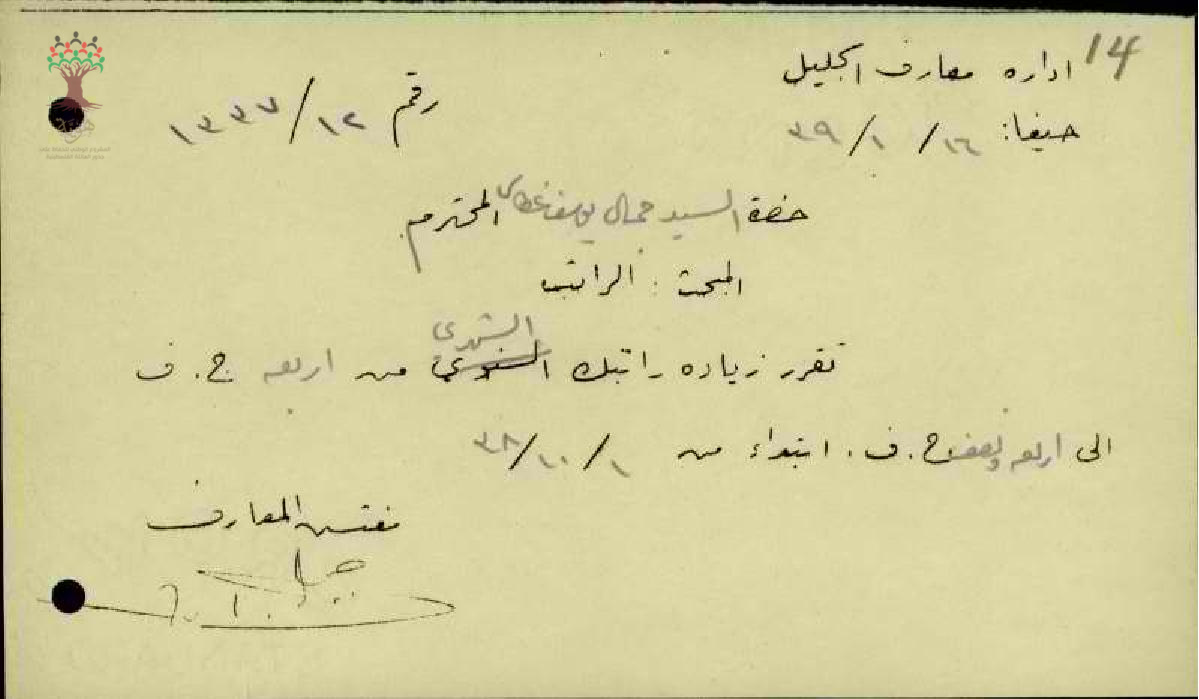 14
اداره معارف الجليل
حيفا: ١٦/ ١/ ٣٩
رقم ١٢/ ١٣٣٧
حضرة السيد جمال يوسف المحترم
المبحث: الراتب
الشهري
تقرر زياده راتبك السنوي من اربعه ج. ف
الى اربعه ونصف ج. ف. ابتداء من ١/ ١٠/ ٣٨
مفتش المعارف